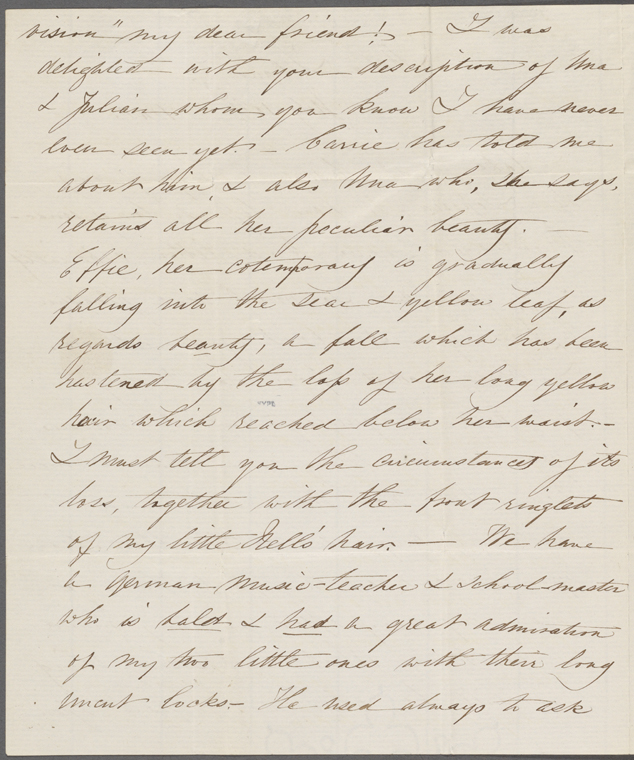 vision" my dear friend! — I was
delighted with your description of Una
& Julian whom you know I have never
even seen yet. — Carrie has told me
about him, & also Una who, she says,
retains all her peculiar beauty. —
Effie, her cotemporary is gradually
falling into the sear & yellow leaf, as
regards beauty, a fall which has been
hastened by the loss of her long yellow
hair which reached below her waist. —
I must tell you the circumstances of its
loss, together with the front ringlets
of my little Nell's hair. — We have
a German music-teacher & school-master
who is bald & had a great admiration
of my two little ones with their long
uncut locks — He used always to ask